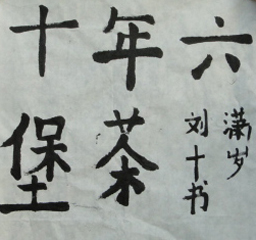 十年六
堡茶
满岁
刘十书